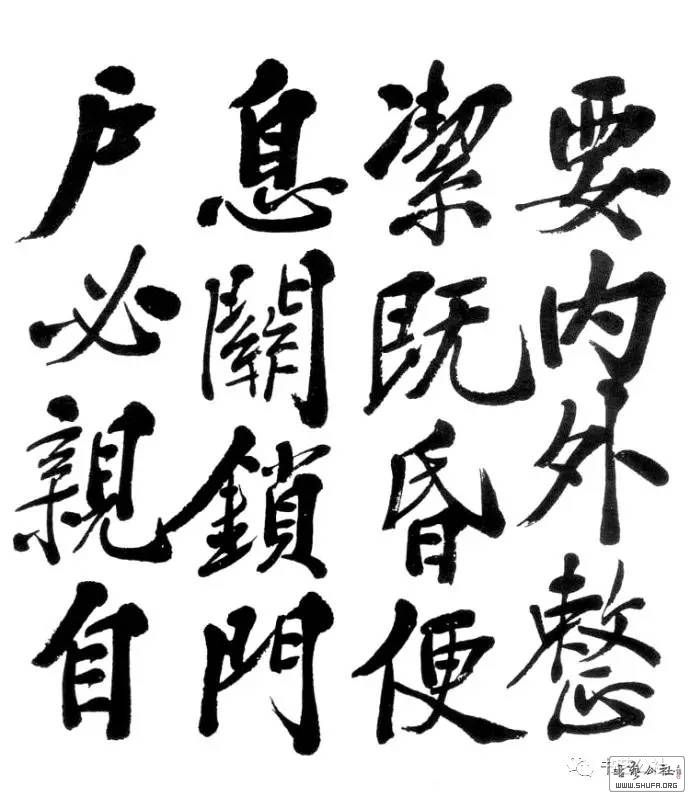 要内外整
潔既昏便
息關鎖門
户必親自
書藝公社
WWW.SHUFA.ORG